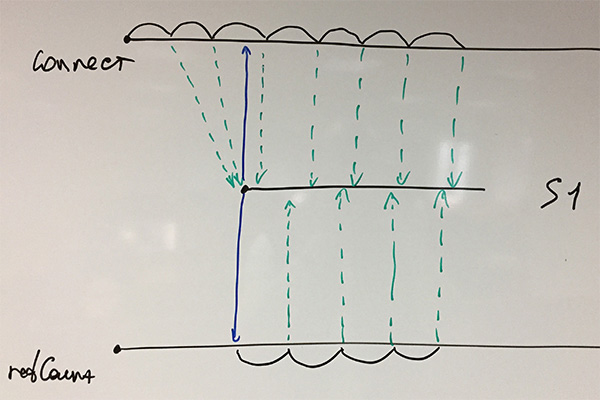 Connect
S1
refCount